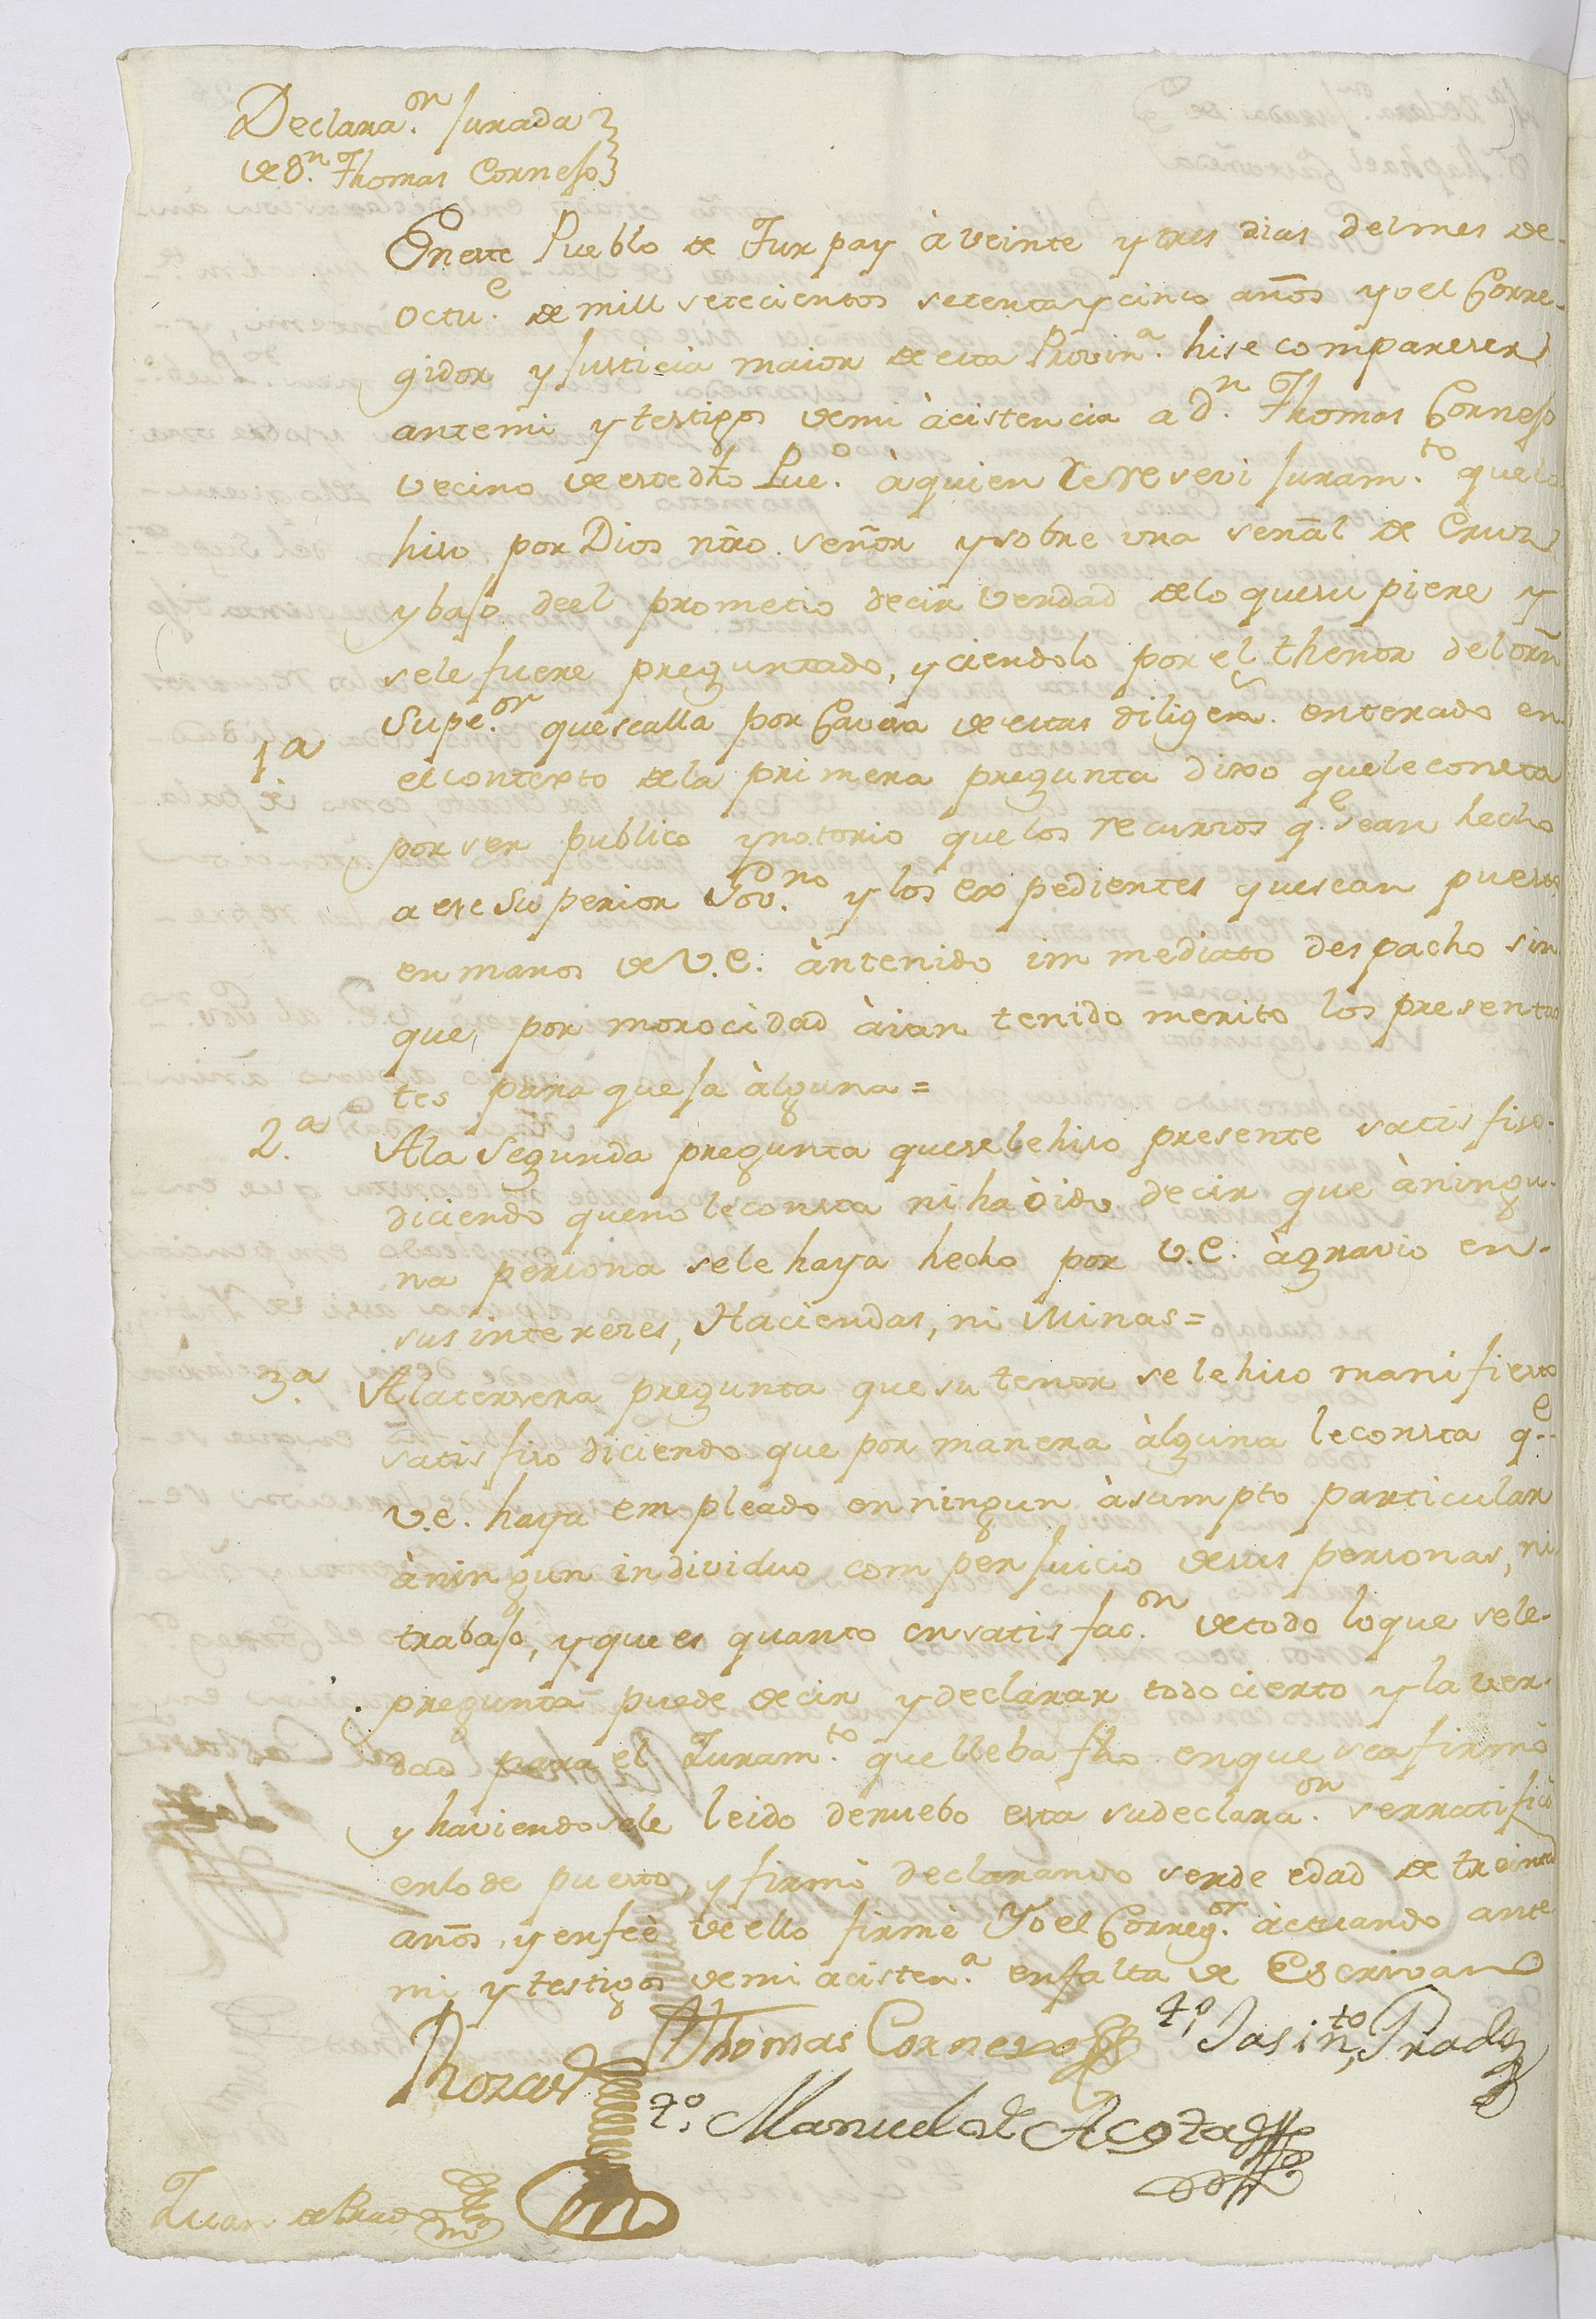 Declara.on Jurada
de Dn. Thomas Cornejo
En este Pueblo de Turpay à veinte y tres dias del mes de
Octu.e de mill setecientos setenta y cinco años yo el Corre-
gidor y Justicia maior de esta Provin.a hise compareser
antemi y testigos de mi àcistencia a Dn. Thomas Cornejo
vecino de este dho Pue.o à quien le reseví Juram.to que lo
hiso por Dios nro. señor y sobre una señal de Cruz
y bajo de el prometio decir verdad de lo que supiere y
se le fuere preguntado, y ciendolo por el thenor del orn
Supe.or que se alla por Cavesa de estas diligens. enterado en
1.a el contexto de la primera pregunta dixo que le consta
por ser publico y notorio que los recursos q.e sean hecho
a ese Superior Gov.no y los expedientes que sean puesto
en manos de V.E. àn tenido immediato despacho sin
que, por morocidad àian tenido merito los presentan
tes para queja àlguna =
2.a A la Segunda pregunta que se le hiso presente satisfiso
diciendo que no le consta ni ha òido decir que àningu-
na persona se le haya hecho por V.E. àgravio en
sus intereses, Haciendas, ni Minas =
3.a A la tersera pregunta que su tenor se le hiso manifiesto
satisfiso diciendo que por manera àlguna le consta q.e
V.E. haya empleado en ningun àsumpto particular
àningun individuo com perjuicio de sus personas, ni
trabajo, y que es quanto en satisfac.on de todo lo que se le
pregunta puede decir y declarar todo cierto y la ver-
dad para el Juram.to que lleba fho en que se afirmó
y haviendosele leido de nuebo esta su declara.on serratificó
en lo de puesto, y firmó declarando ser de edad de treinta
años, y enfeè de ello firmè Yo el Correg.or àctuando ante
mi y testigos de mi acisten.a enfalta de Escrivano
Rozas Thomas Cornejo t.o Jasin.to Prado
t.o Manuel de Acosta
Juan de